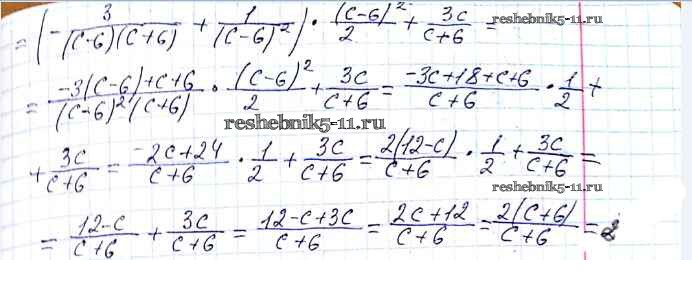 = (- 3/((c-6)(c+6)) + 1/(c-6)²) · (c-6)²/2 + 3c/(c+6) =
reshebnik5-11.ru
= (-3(c-6)+c+6)/((c-6)²(c+6)) · (c-6)²/2 + 3c/(c+6) = (-3c+18+c+6)/(c+6) · 1/2 +
reshebnik5-11.ru
+ 3c/(c+6) = (-2c+24)/(c+6) · 1/2 + 3c/(c+6) = 2(12-c)/(c+6) · 1/2 + 3c/(c+6) =
reshebnik5-11.ru
= (12-c)/(c+6) + 3c/(c+6) = (12-c+3c)/(c+6) = (2c+12)/(c+6) = 2(c+6)/(c+6) = 2